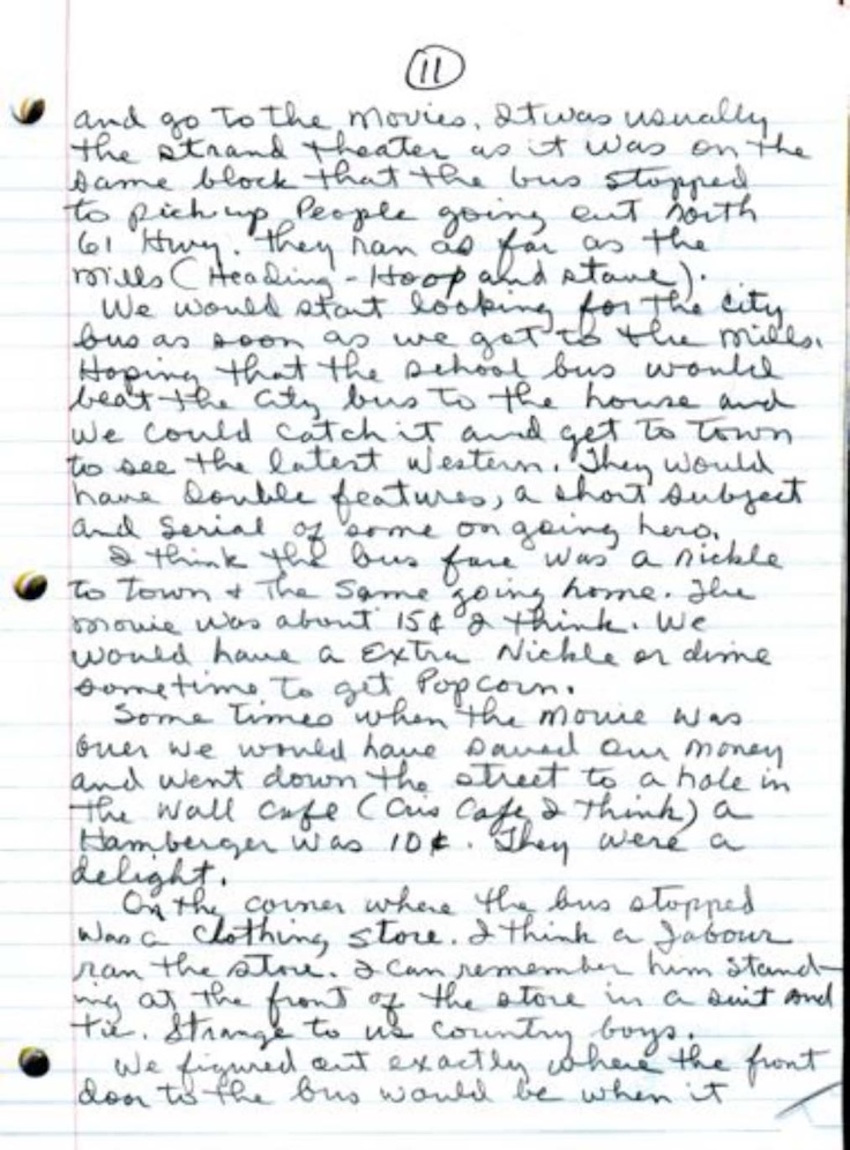 11
and go to the movies. It was usually
the strand theater as it was on the
same block that the bus stopped
to pick up People going out North
61 Hwy. They ran as far as the
mills (Heading - Hoop and stave).
We would start looking for the city
bus as soon as we got to the mills.
Hoping that the school bus would
beat the city bus to the house and
we could catch it and get to town
to see the latest Western. They would
have double features, a short subject
and Serial of some on going hero.
I think the bus fare was a nickle
to town & the same going home. The
movie was about 15¢ I think. We
would have a Extra Nickle or dime
sometime to get Popcorn.
Some times when the movie was
over we would have saved our money
and went down the street to a hole in
the wall cafe ( Cafe I think) a
Hamberger was 10¢. They were a
delight.
On the corner where the bus stopped
was a clothing store. I think a Jabour
ran the store. I can remember him stand-
ing at the front of the store in a suit and
tie. Strange to us country boys.
We figured out exactly where the front
door to the bus would be when it